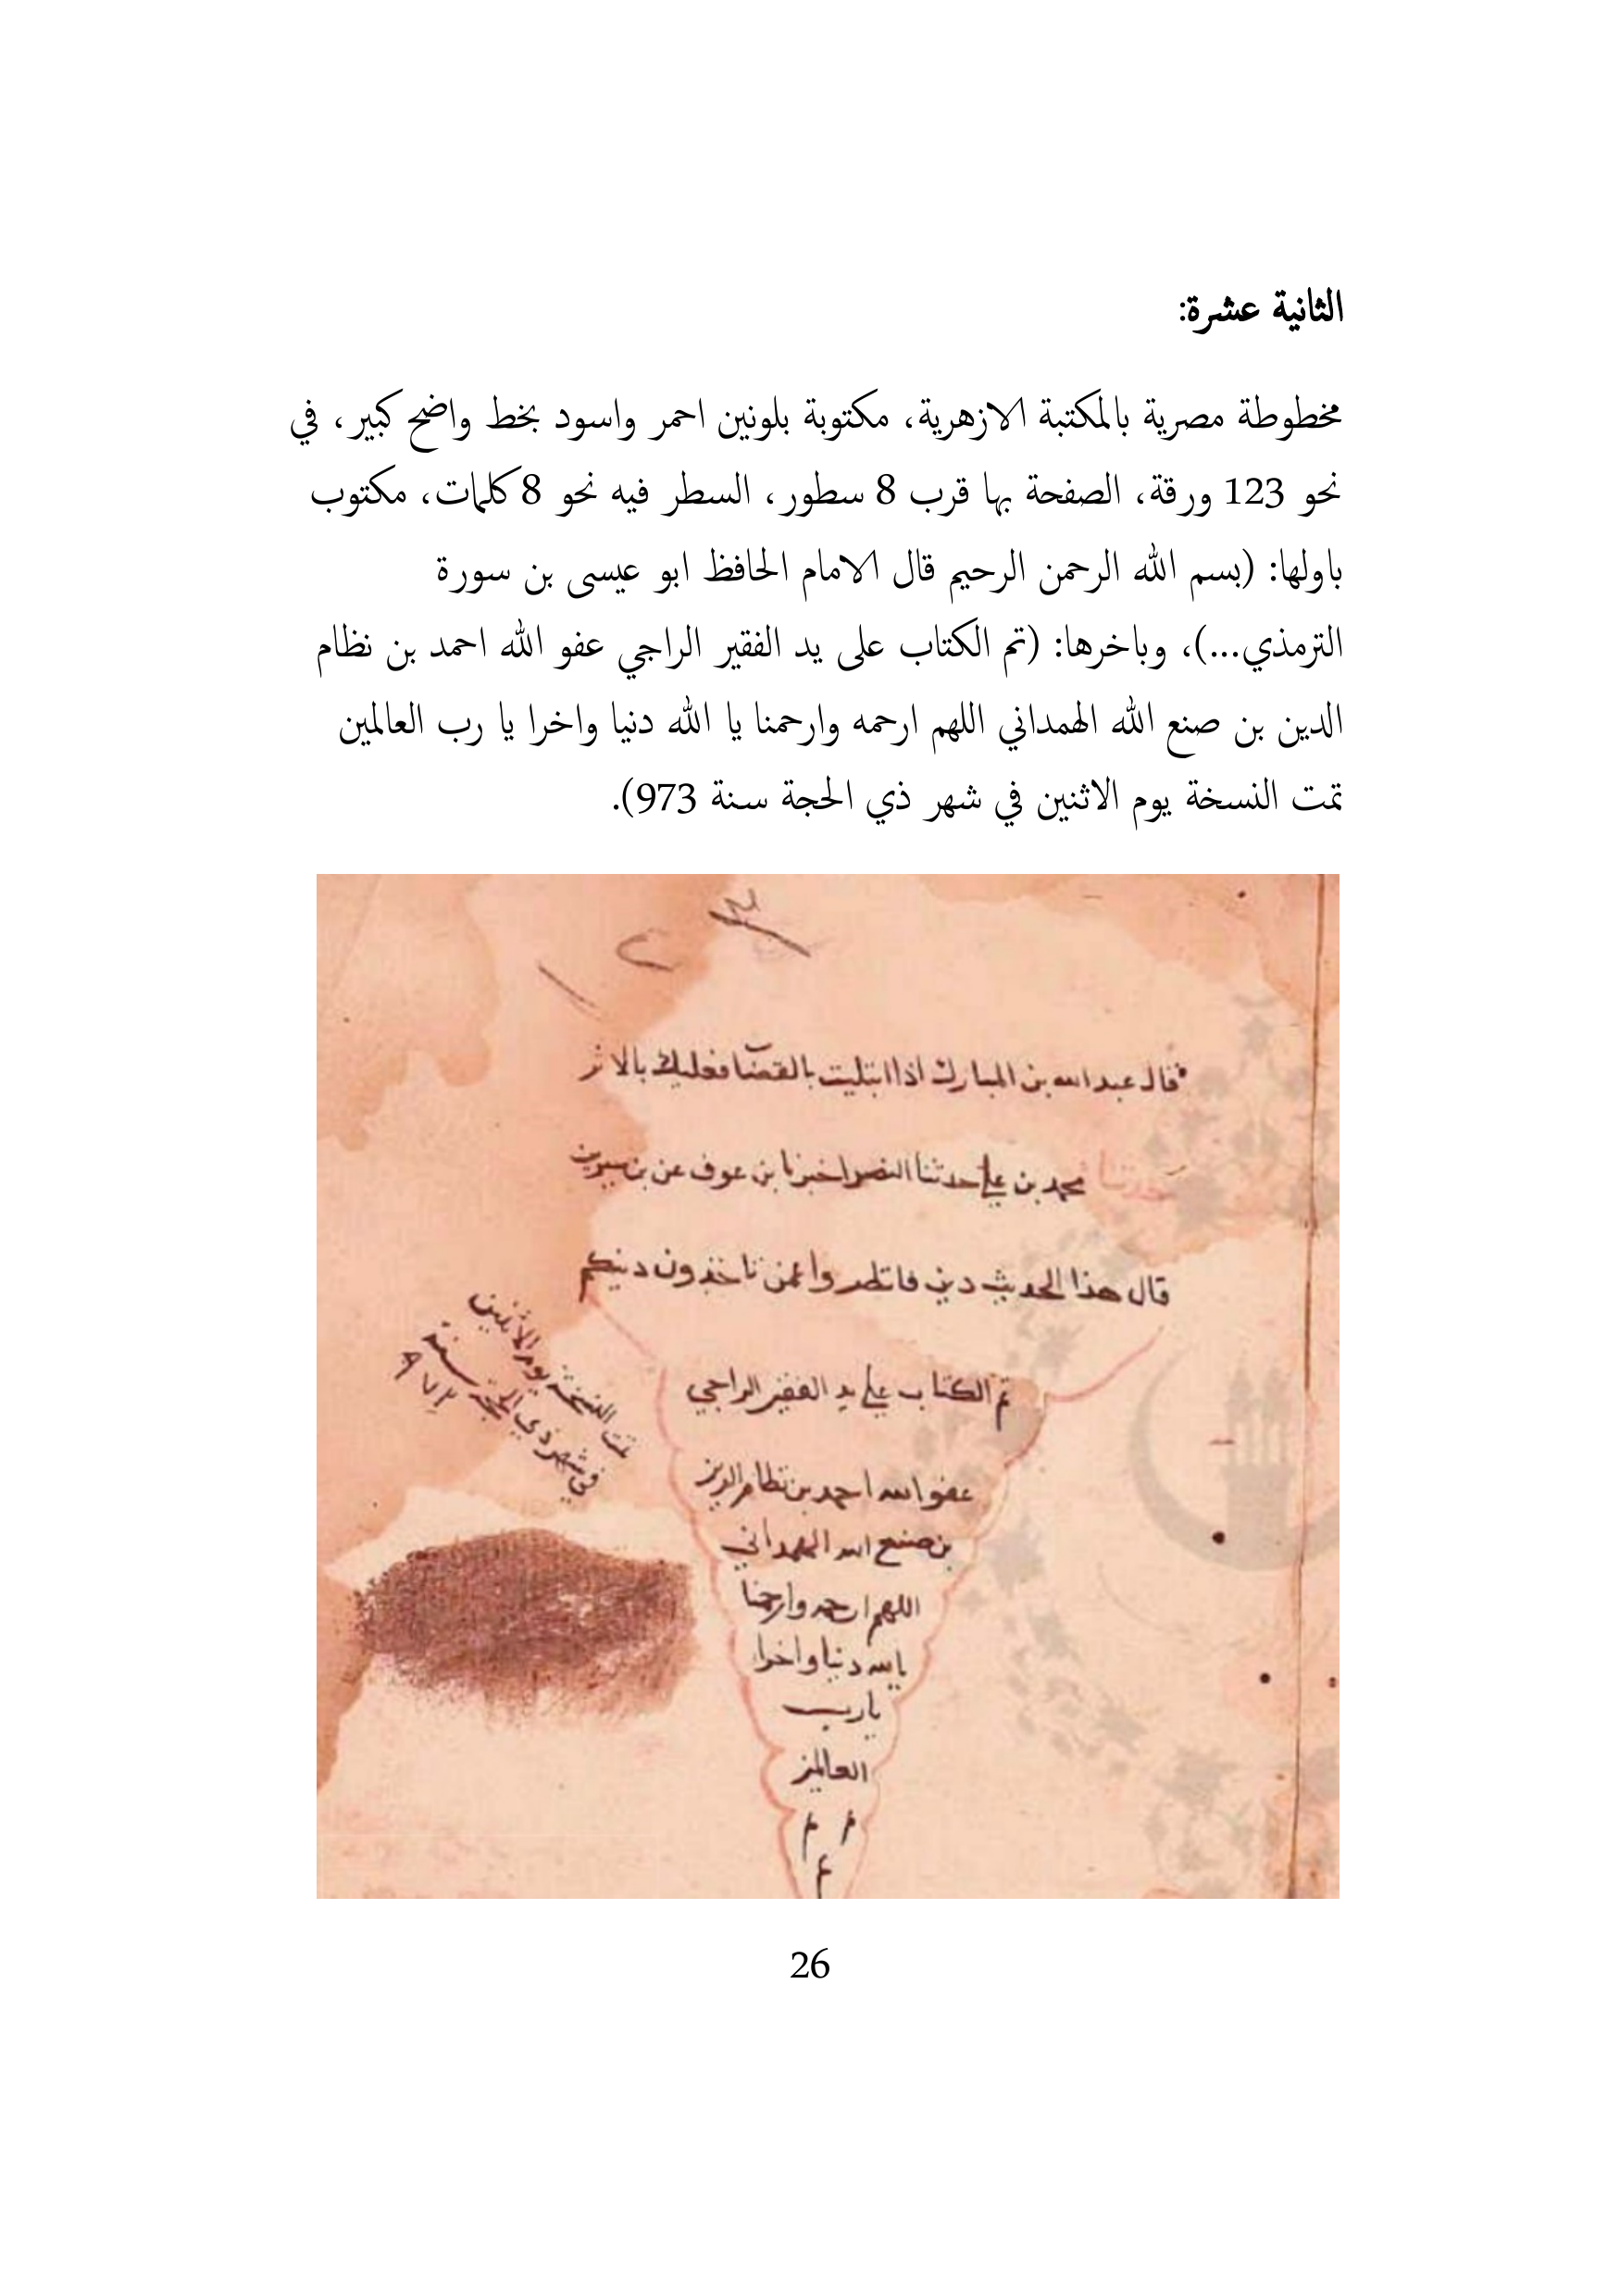 الثانية عشرة:
مخطوطة مصرية بالمكتبة الازهرية، مكتوبة بلونين احمر واسود بخط واضح كبير، في
نحو 123 ورقة، الصفحة بها قرب 8 سطور، السطر فيه نحو 8 كلمات، مكتوب
باولها: (بسم الله الرحمن الرحيم قال الامام الحافظ ابو عيسى بن سورة
الترمذي...)، وباخرها: (تم الكتاب على يد الفقير الراجي عفو الله احمد بن نظام
الدين بن صنع الله الهمداني اللهم ارحمه وارحمنا يا الله دنيا واخرا يا رب العالمين
تمت النسخة يوم الاثنين في شهر ذي الحجة سنة 973).
١٢٣
قال عبد الله بن المبارك اذا ابتليت بالقضا فعليك بالاثر
حدثنا محمد بن علي حدثنا النضر اخبرنا بن عوف عن بن سيرين
قال هذا الحديث دين فانظروا عمن تاخذون دينكم
تم الكتاب علي يد الفقير الراجي
عفو الله احمد بن نظام الدين
بن صنع الله الهمداني
اللهم ارحمه وارحمنا
يا الله دنيا واخرا
يا رب
العالمين
م م
م
تمت النسخة يوم الاثنين
في شهر ذي الحجة سنة
٩٧٣
26